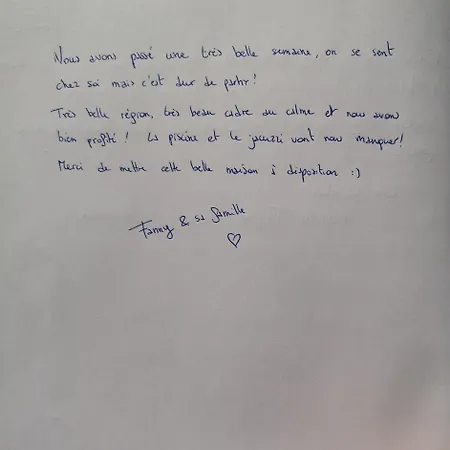 Nous avons passé une très belle semaine, on se sent
chez soi mais c'est dur de partir !
Très belle région, très beau cadre au calme et nous avons
bien profité ! La piscine et le jacuzzi vont nous manquer !
Merci de mettre cette belle maison à disposition :)
Fanny & sa famille
♡